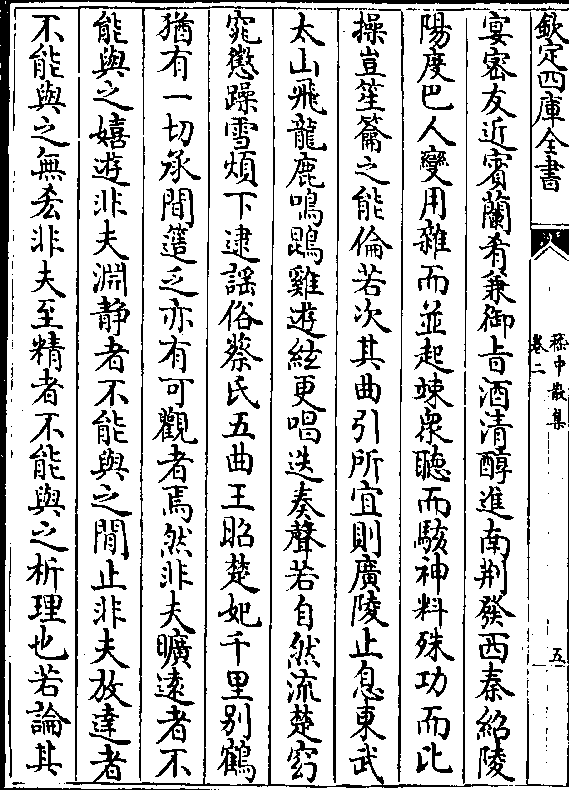 欽定四庫全書
嵇中散集
卷二
五
宴密友近賓蘭肴兼御旨酒清醇進南荆發西秦紹陵
陽度巴人變用雜而並起竦衆聽而駭神料殊功而比
操豈笙籥之能倫若次其曲引所宜則廣陵止息東武
太山飛龍鹿鳴鵾雞遊絃更唱迭奏聲若自然流楚窈
窕懲躁雪煩下逮謡俗蔡氏五曲王昭楚妃千里别鶴
猶有一切承間簉乏亦有可觀者焉然非夫曠逺者不
能與之嬉遊非夫淵静者不能與之閒止非夫放達者
不能與之無㕕非夫至精者不能與之析理也若論其